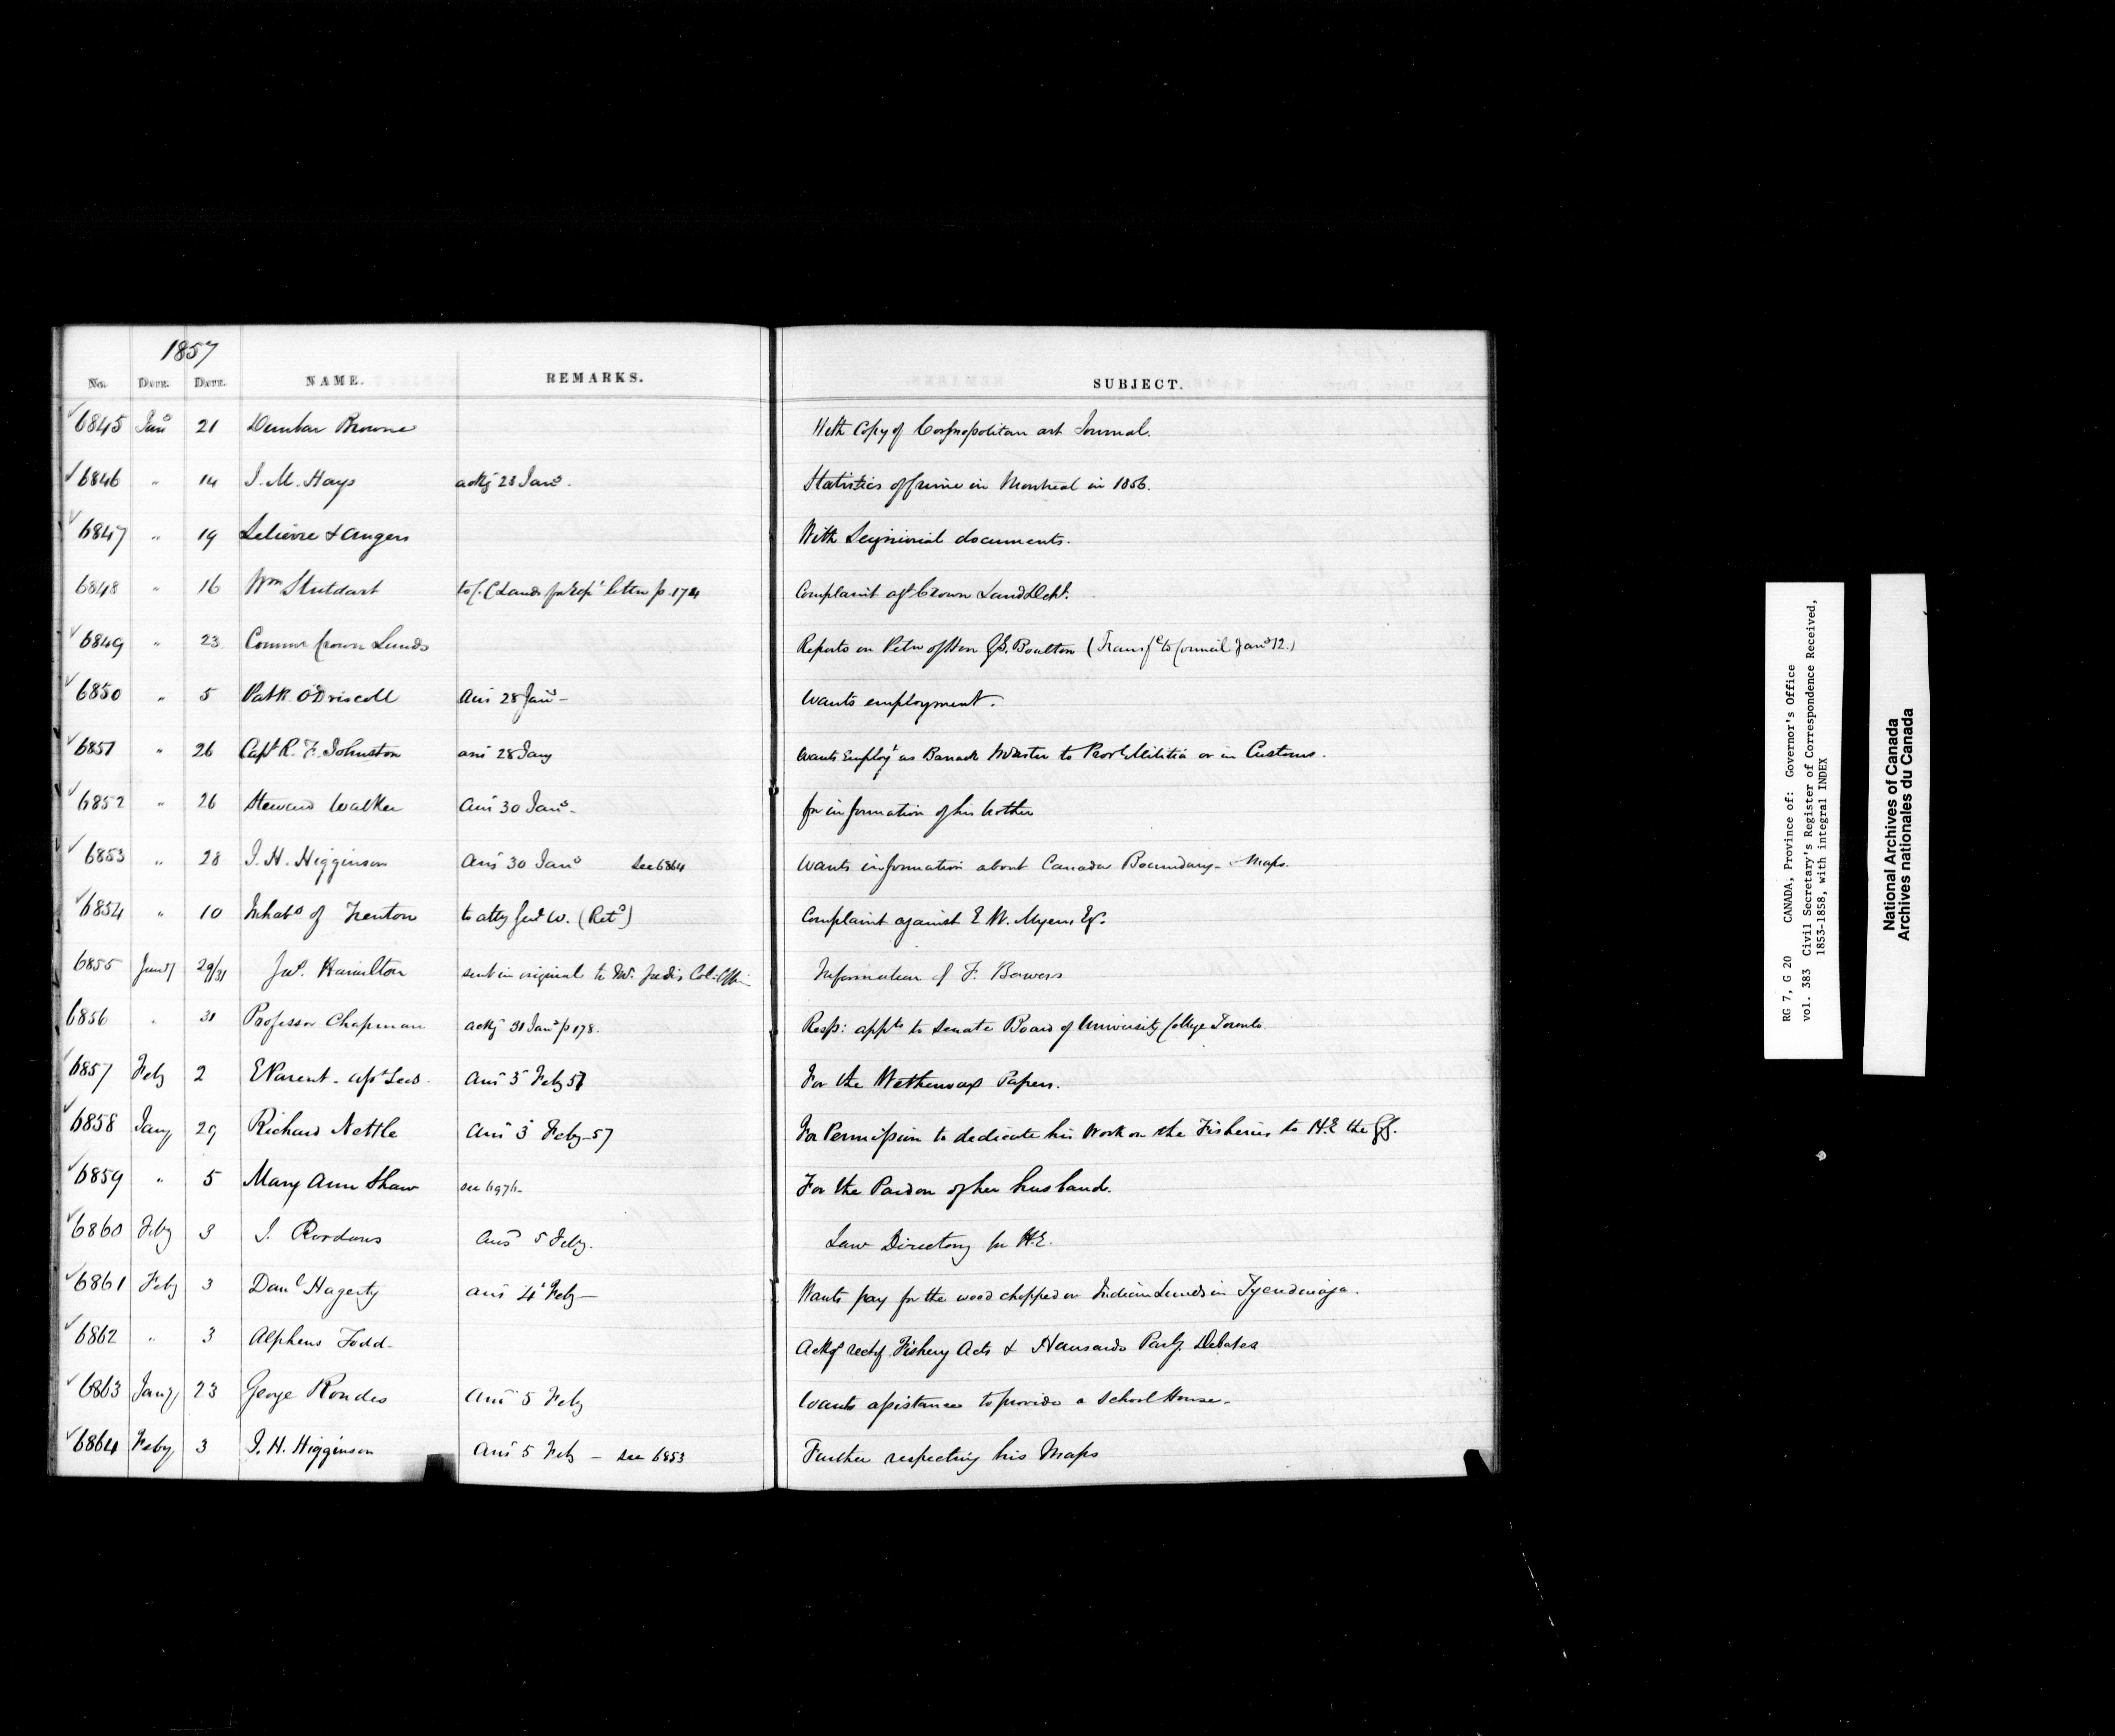 1857
No. DATE. DATE. NAME. REMARKS. SUBJECT.
6845 Jany 21 Dunbar Browne With Copy of Cosmopolitan art Journal.
6846 " 14 J. M. Hays ackg 28 Jany. Statistics of Crime in Montreal in 1856.
6847 " 19 Lelievre & Angers With Seignioral documents.
6848 " 16 Wm Studdart to C. C Lands for rept letter p. 174 Complaint agt Crown Land Dept.
6849 " 23 Commr Crown Lands Reports on Petn of Hon G.S. Boulton (Transfd to Council Jany 12.)
6850 " 5 Patk O'Driscoll Ans 28 Jany - Wants employment.
6851 " 26 Capt R. F. Johnston ans 28 Jany Wants Employt as Barrack Master to Provl Militia or in Customs.
6852 " 26 Steward Walker Ans 30 Jany - for information of his brother
6853 " 28 J. H. Higginson Ans 30 Jany see 6864 Wants information about Canada Boundary - Maps.
6854 " 10 Inhabs of Trenton to atty Genl W. (Retd) Complaint against E W. Myers Esq.
6855 Jany 29/31 Jno. Hamilton sent in original to Mr. Col: Offi Information of F. Bowers
6856 " 31 Professor Chapman ackg 31 Jany p 178. Resp: appts to Senate Board of University College Toronto.
6857 Feby 2 E Parent - asst Secy. Ans 3 Feby 57 For the Papers.
6858 Jany 29 Richard Nettle Ans 3 Feby - 57 For Permission to dedicate his Work on the Fisheries to H.E the GG.
6859 " 5 Mary Ann Shaw see 6976 - For the Pardon of her husband.
6860 Feby 3 J. Rordans Ansd 5 Feby. Law Directory for H.E.
6861 Feby 3 Danl Hagerty ans 4 Feby - Wants pay for the wood chopped on Indian Lands in Tyendinaga.
6862 " 3 Alpheus Todd - Ackg rect of Fishery Acts & Hansards Parly. Debates
6863 Jany 23 George Rondes Ans 5 Feby Wants assistance to provide a School House -
6864 Feby 3 J. H. Higginson Ans 5 Feby - see 6853 Further respecting his Maps
RG 7, G 20 CANADA, Province of: Governor's Office
vol. 383 Civil Secretary's Register of Correspondence Received,
1853-1858, with integral INDEX
National Archives of Canada
Archives nationales du Canada